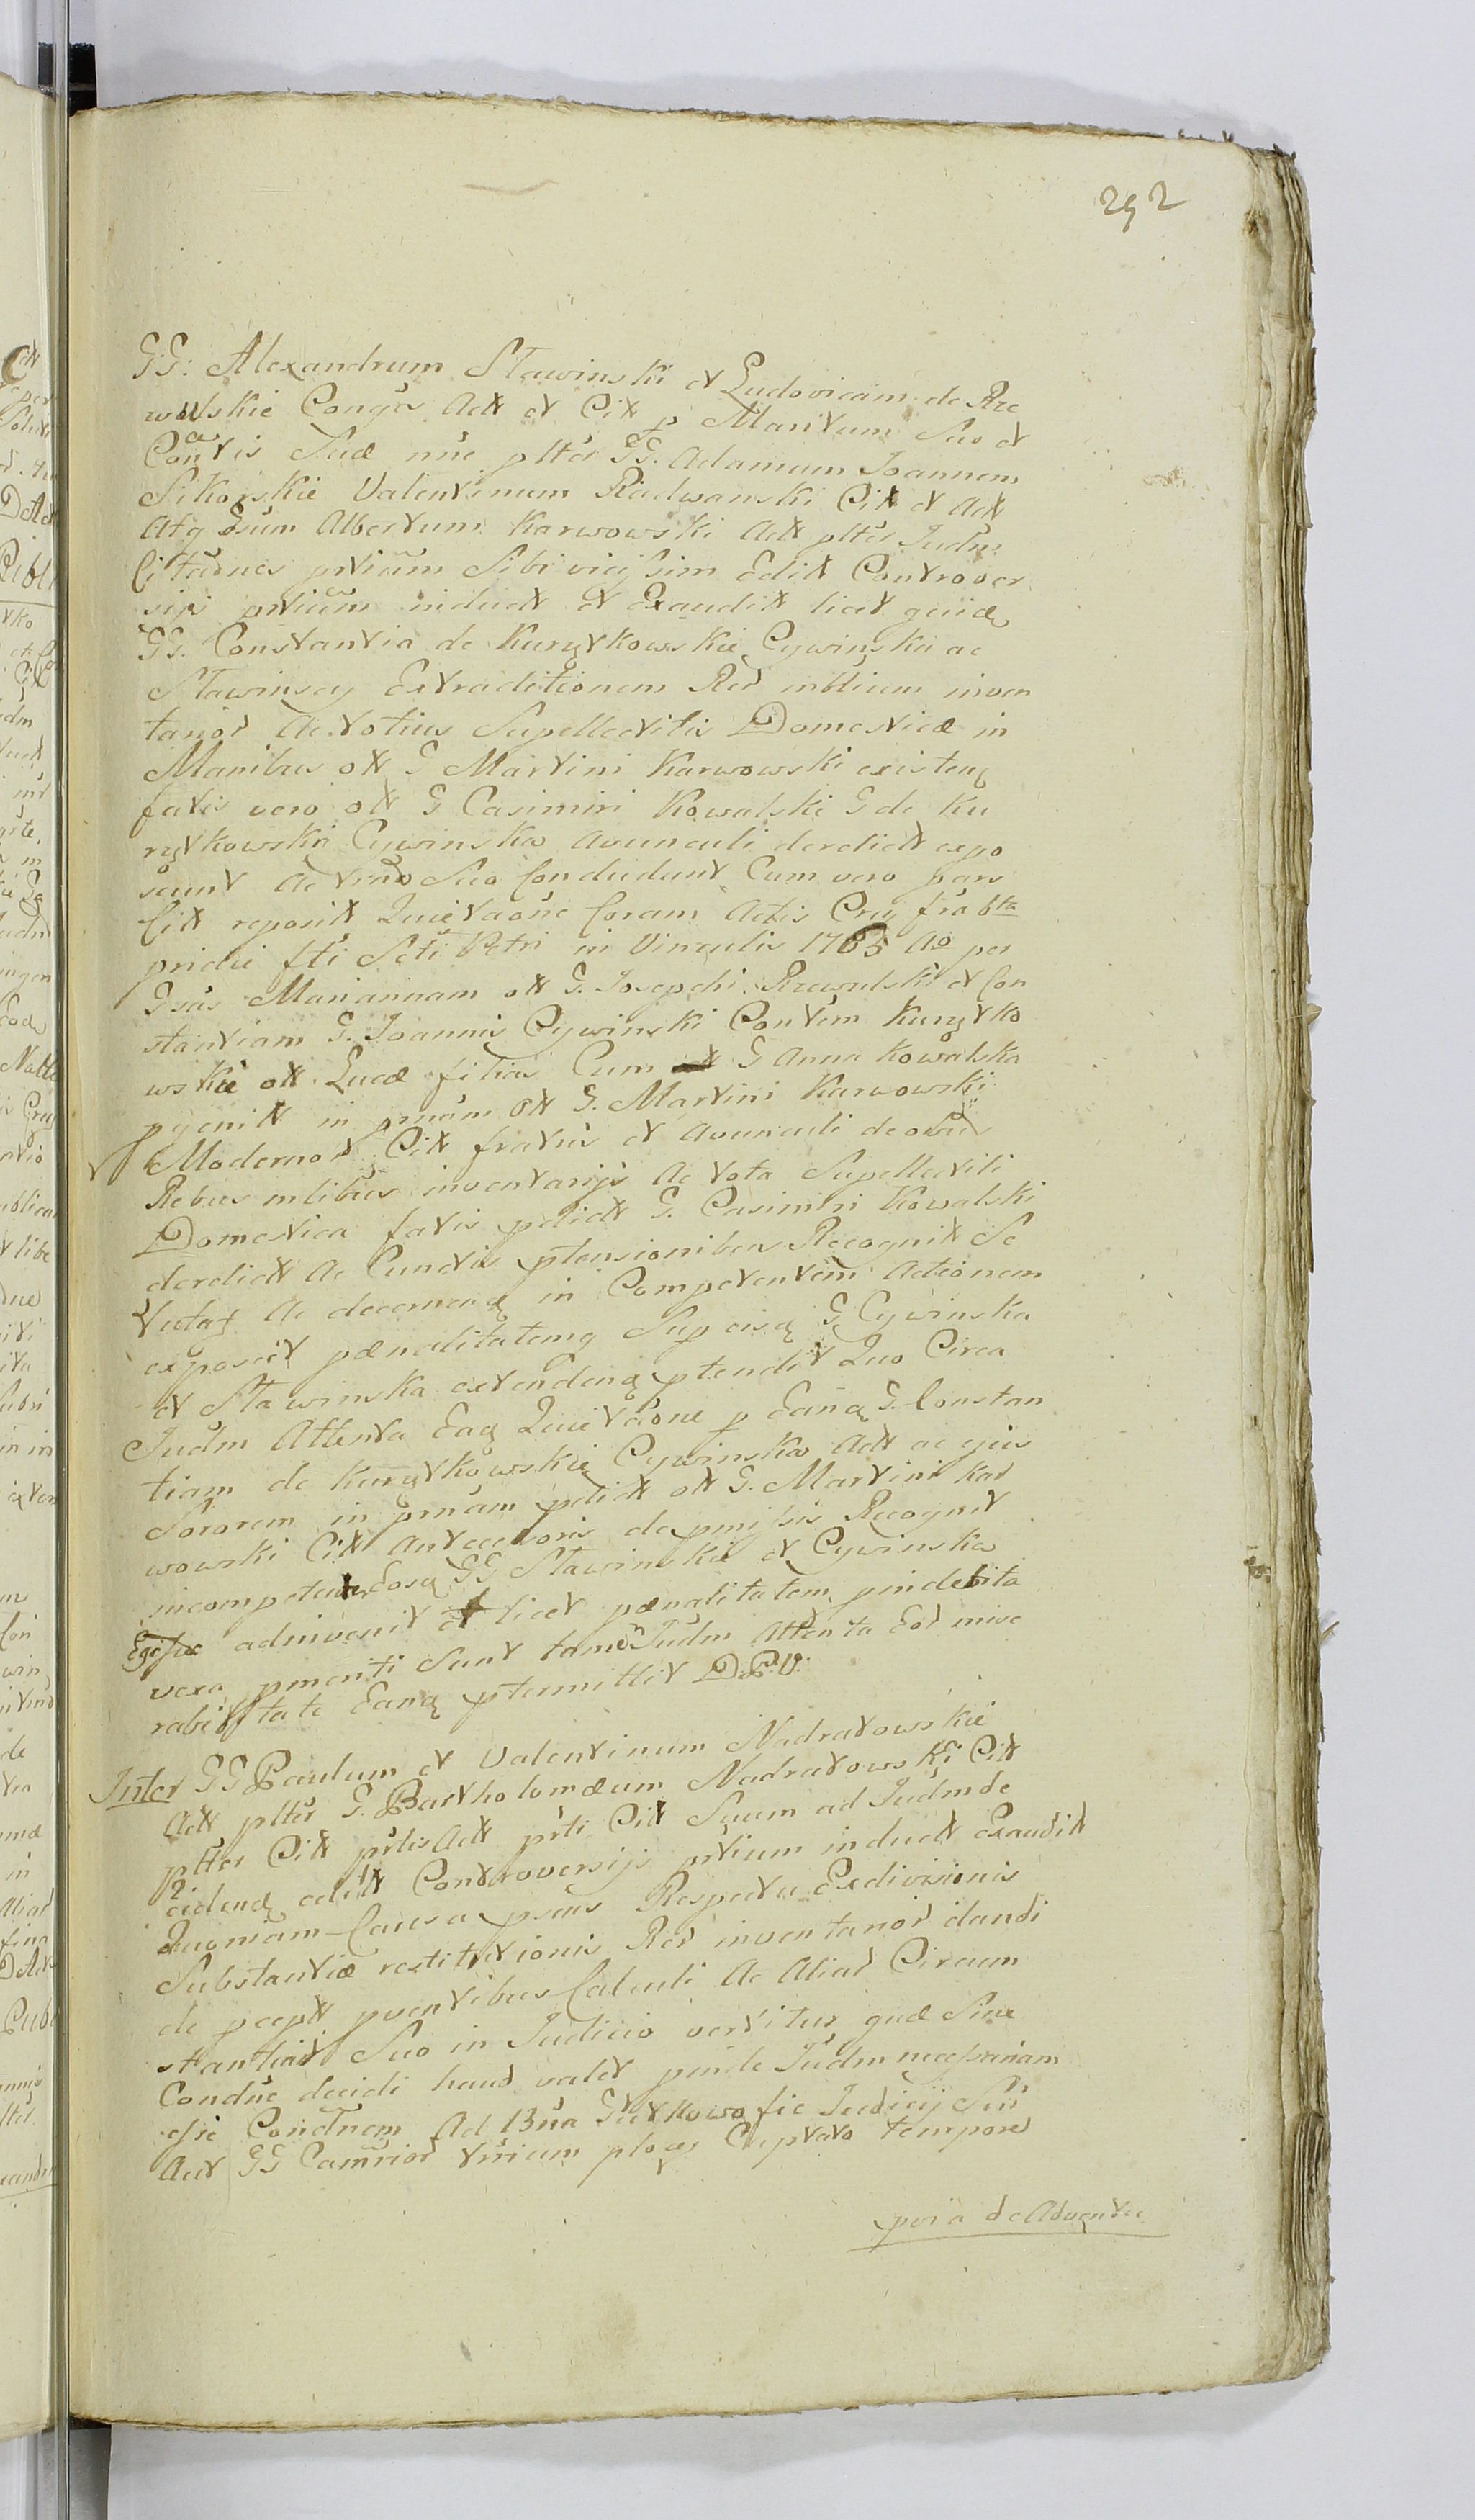 292
GG: Alexandrum Stawinski et Ludovicam de Rze
wulskie Conges Actt et Citt p Maritum Suo et
Contis Suæ nne plter GG. Adamum Joannem
Sikorskie Valentinum Radwanski Citt et Actt
Atq Gsum Albertum Karwowski Actt plter Judm
Citaones prtium Sibi vicissim Edit Controver
sijs prtium induct et Exaudit licet
GG. Constantia de Kurytkowskie Cywinska ac
Stawinscy Extraditionem Rer mblium inven
tarior Ac totius Supellectitis Domesticæ in
Manibus ott G Martini Karwowski existenq
fatis vero ott G Casimiri Kowalski G de Ku
rytkowskie Cywinska avunculi derelict expo
scunt Ac Suo Concludunt Cum vero pars
Citt reposit Quietaone Coram Actis Cruy fra 6ta
pridie fti Scti Petri in Vinculis 1765 Ao per
Gsas Mariannam ott G. Josephi Rzewulski et Con
stantiam G. Joannis Cywinski Contem Kurytko
wskie ott Lucæ filias Cum G Anna Kowalska
pgenitt in prnam ott G. Martini Karwowski
Modernor Citt fratris et avunculi de
Rebus mlibus inventarijs Ac tota Supellectili
Domestica fatis pelict G. Casimiri Kowalski
derelict Ac Cunctis ptensionibus Recognit Se
Ac decernenq in Competentem Actionem
exposcit pænalitatemq Sup eisq G Cywinska
et Stawinska extendenq ptendit Quo Circa
Judm Attenta Eaq Quietaone p Eanq G. Constan
tiam de Kurytkowskie Cywinska Actt ac ejus
Sororem in prnam pelict ott G. Martini Kar
wowski Citt Antecessoris de pmissis Recognit
incompetenter Eosq GG Stawinskie et Cywinska
Egisse adinvenit licet pænalitatem pindebita
vexa pmeriti Sunt tamen Judm Attenta Eor mise
rabilitate Eanq ptermittit D.P.V.
Inter GG Paulum et Valentinum Nadratowskie
Actt plter G. Bartholomæum Nadratowski Citt
plter Citt prtis Actt prti Citt Suum ad Judmde
cidenq edit Controversijs prtium induct Exaudit
Quoniam Causa psens Respectu Exdivisionis
Substantiæ restitutionis Rer inventarior dandi
de pcept pventibus Calculi Ac Aliar Circum
stantiar Suo in Judicio vertitur quæ Sine
Condne decidi haud valet pinde Judm necessariam
esse Condnem Ad Bna Gutkowo fie Judicij Sui
Act GG Camrior trrium Captato tempore
pria de Adventu